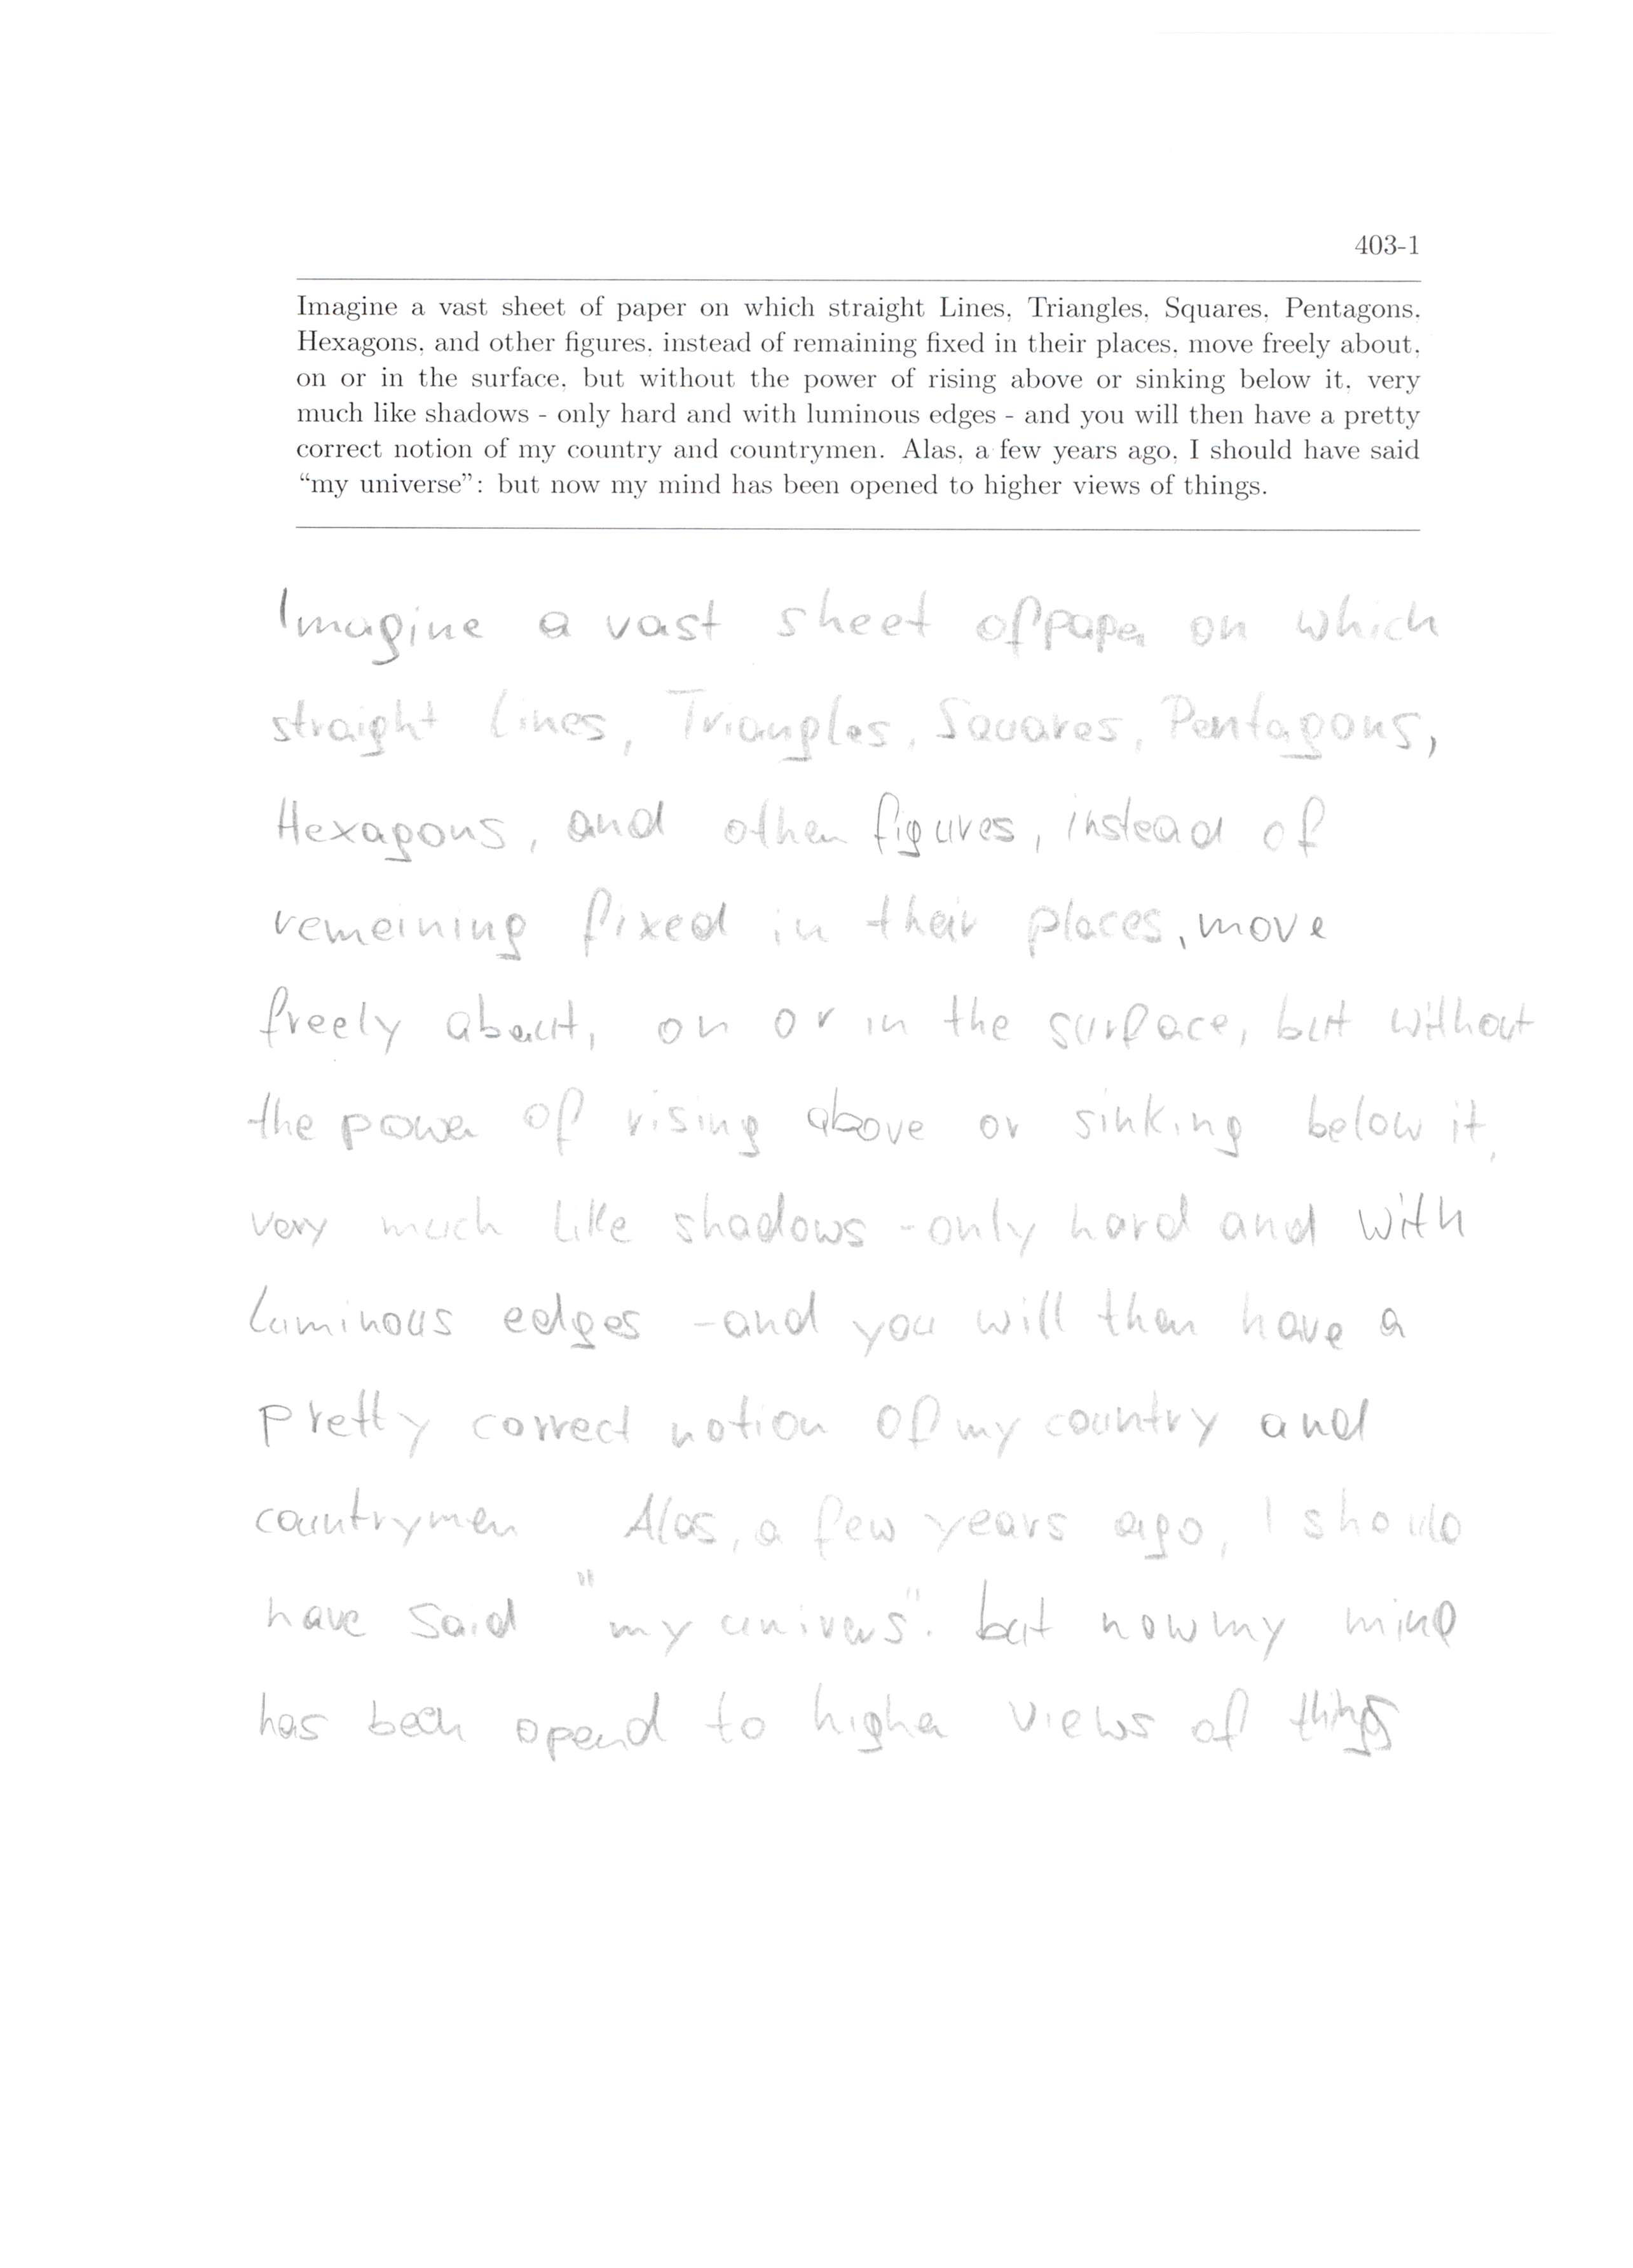 403-1
Imagine a vast sheet of paper on which straight Lines, Triangles, Squares, Pentagons,
Hexagons, and other figures, instead of remaining fixed in their places, move freely about,
on or in the surface, but without the power of rising above or sinking below it, very
much like shadows - only hard and with luminous edges - and you will then have a pretty
correct notion of my country and countrymen. Alas, a few years ago, I should have said
“my universe”: but now my mind has been opened to higher views of things.
Imagine a vast sheet of paper on which
straight Lines, Triangles, Squares, Pentagons,
Hexagons, and other figures, instead of
remeining fixed in their places, move
freely about, on or in the surface, but without
the power of rising above or sinking below it,
very much like shadows - only hard and with
luminous edges - and you will then have a
pretty correct notion of my country and
countrymen Alas, a few years ago, I should
have said "my univers". but now my mind
has been opend to higher views of things